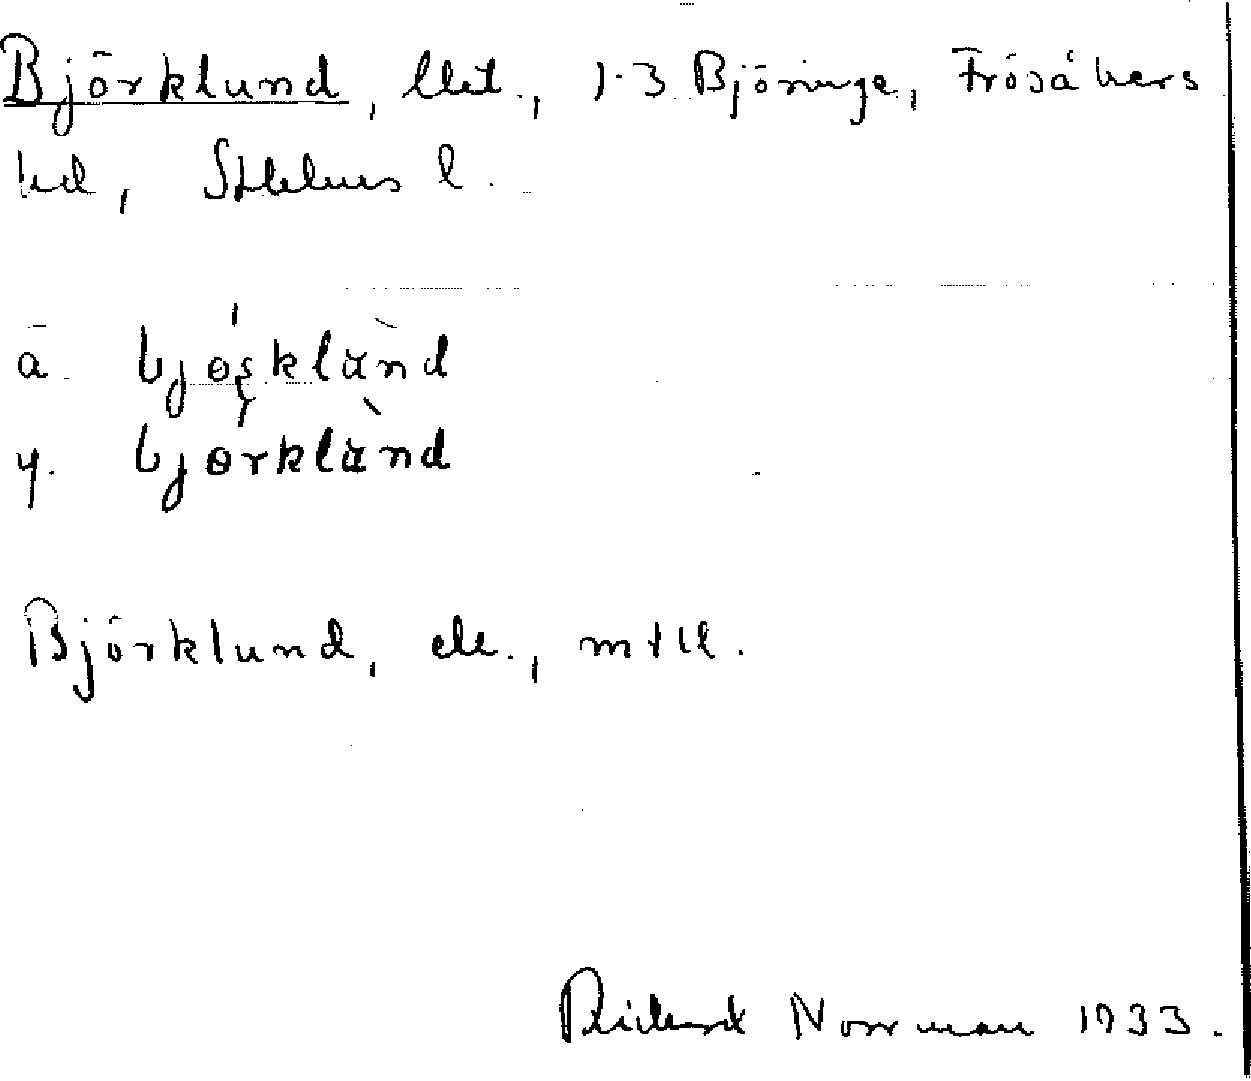 Björklund, lht., 1-3 Björinge, Frösåkers
hd, Sthlms l.
ä. bjǫskländ
y. bjørkländ
Björklund, mtll.
Rickard Norrman 1933.